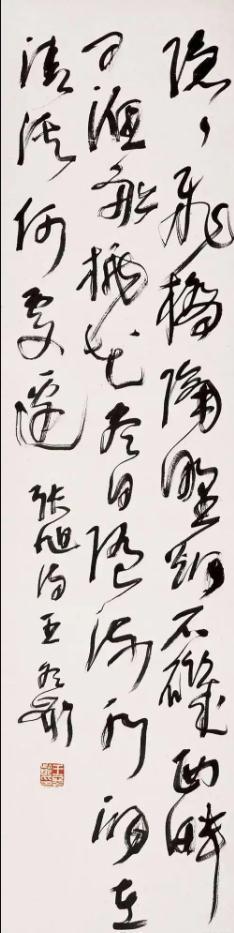 隐〻飛橋隔野烟石磯西畔
问渔船桃花尽日随流水洞在
清溪何處邊
张旭诗 王冬龄